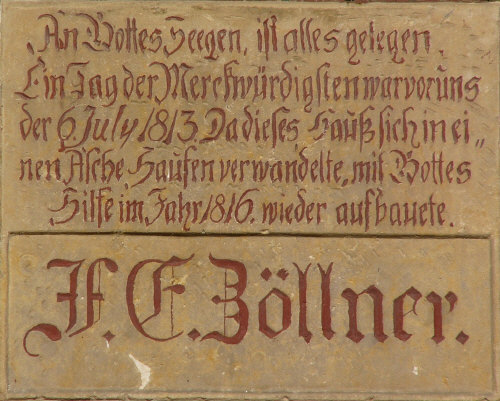 An Gottes Seegen, ist alles gelegen.
Ein Tag der Merckwürdigsten war vor uns
der 6 July 1813. Da dieses Hauß sich in ei„
nen Asche Haufen verwandelte, mit Gottes
Hilfe im Jahr 1816. wieder aufbauete.
F. E. Zöllner.